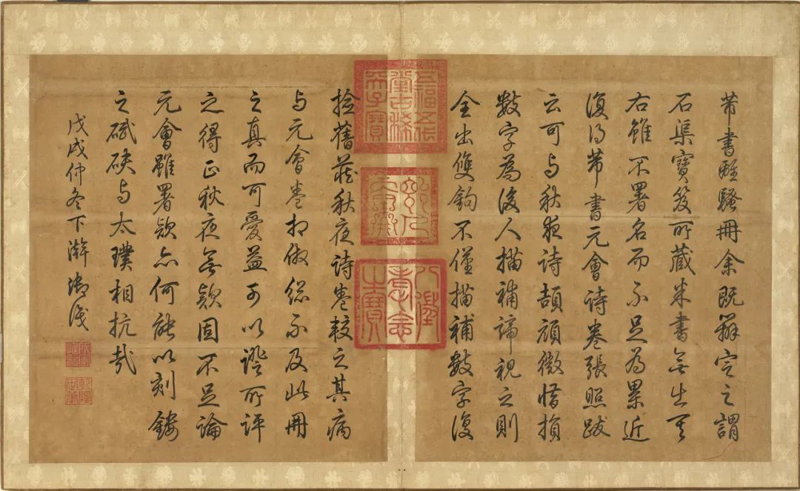 芾書離騷冊余既辨定之謂
石渠寶笈所藏米書無出其
右雖不署名而不足為累近
復得芾書元會詩卷張照跋
云可與秋夜詩頡頏微惜損
數字為後人描補諦視之則
全出雙鉤不僅描補數字復
撿舊藏秋夜詩卷較之其病
與元會卷相倣總不及此冊
之真而可愛益可以證所評
之得正秋夜無款固不足論
元會雖署款亦何能以刻鏤
之碔砆與太璞相抗哉
戊戌仲冬下澣御識
五福五代堂古稀天子寶
八徵耄念之寶